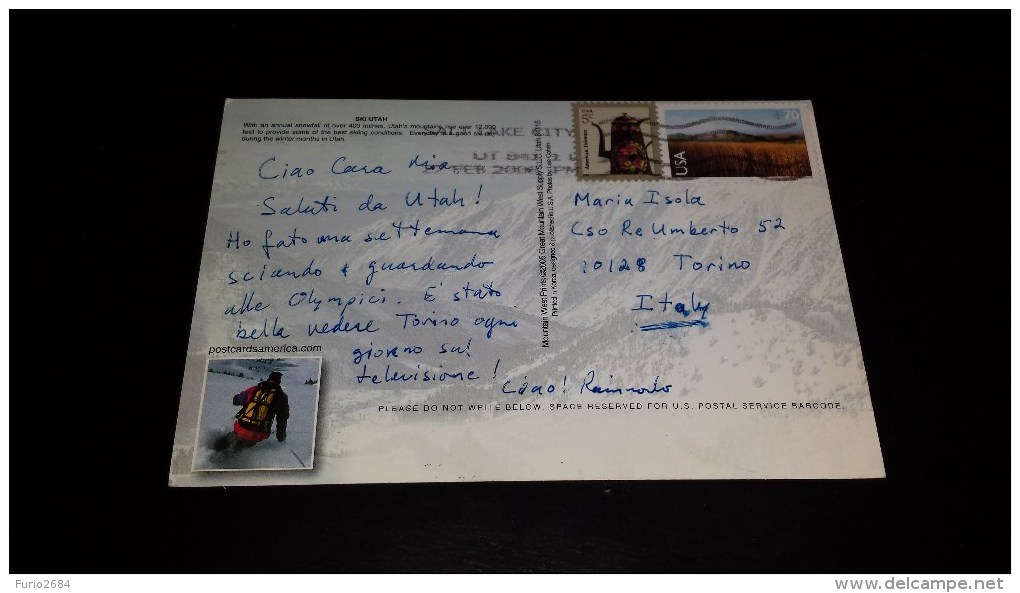 SKI UTAH
With an annual snowfall of over 400 inches, Utah's mountains rise over 12,000
feet to provide some of the best skiing conditions. Everyday is a good ski day
during the winter months in Utah.
Ciao Cara Mia
Saluti da Utah!
Ho fato una settemana
sciando & guardando
alle Olympici. E' stato
bella vedere Torino ogni
giorno sul
televisione!
Ciao!
postcardsamerica.com
Mountain West Prints ©2005 Great Mountain West Supply SLC, Utah
Printed in Korea, designed & published in U.S.A. Photos by Lee Cohen
LAKE CITY
UT
FEB
American Toleware
USA
70
Maria Isola
Cso Re Umberto 52
10128 Torino
Italy
PLEASE DO NOT WRITE BELOW. SPACE RESERVED FOR U.S. POSTAL SERVICE BARCODE.
Furio2684
www.delcampe.net